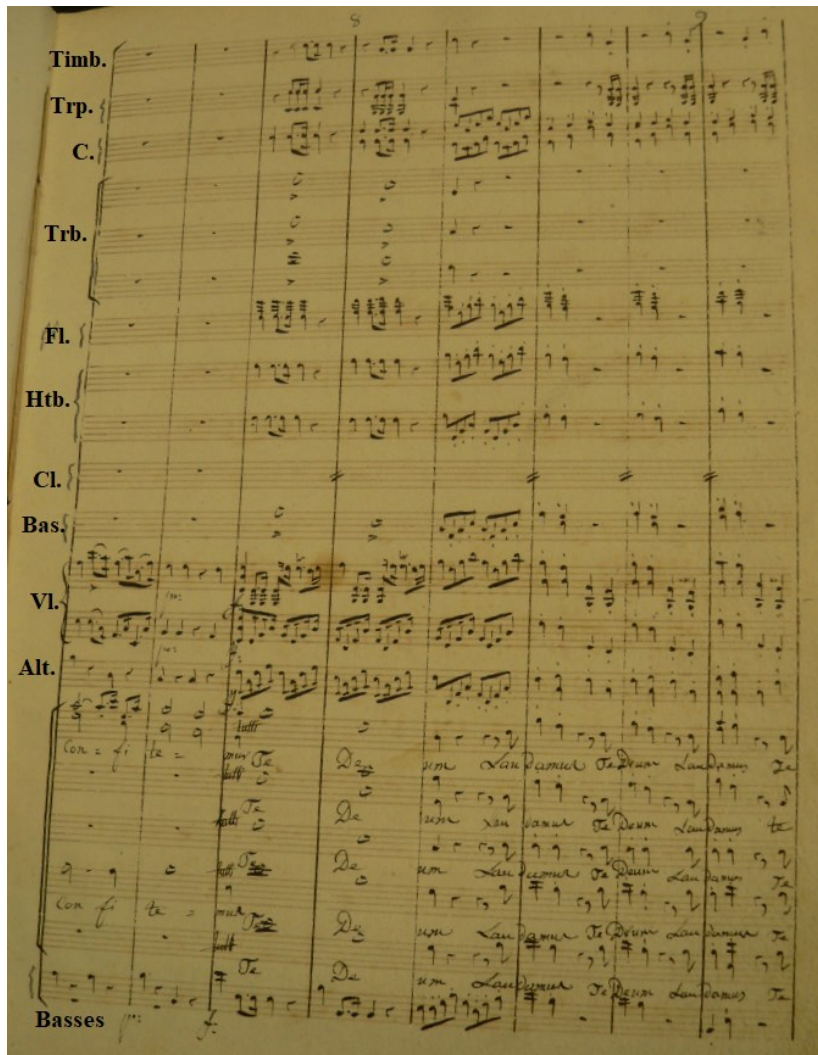 8 9
Timb.
Trp.
C.
Trb.
Fl.
Htb.
Cl.
Bas.
Vl.
Alt.
tutti
Con = fi te = mur Te De um Laudamus Te Deum Laudamus Te
tutti
Te De um Laudamus Te Deum Laudamus te
tutti
Te De um Laudamus Te Deum Laudamus Te
tutti
Con fi te = mur Te De um Laudamus Te Deum Laudamus Te
tutti
Te De um Laudamus Te Deum Laudamus Te
Basses p: f.